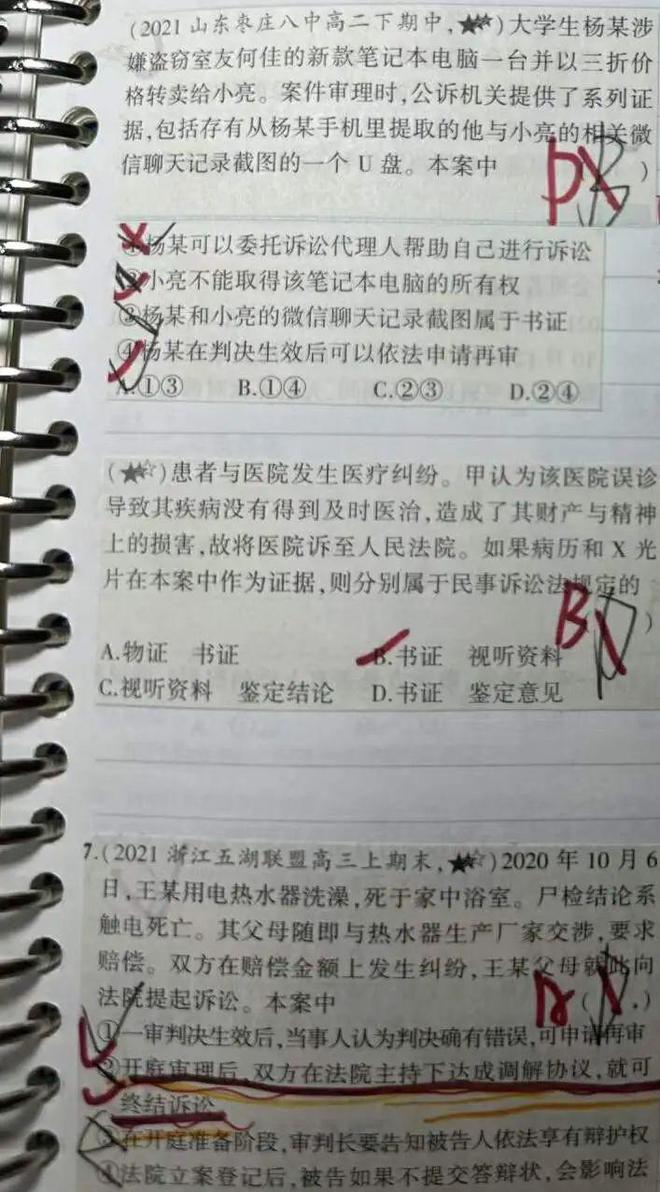 (2021山东枣庄八中高二下期中,★☆)大学生杨某涉
嫌盗窃室友何佳的新款笔记本电脑一台并以三折价
格转卖给小亮。案件审理时,公诉机关提供了系列证
据,包括存有从杨某手机里提取的他与小亮的相关微
信聊天记录截图的一个 U 盘。本案中 ( )
D
B
①杨某可以委托诉讼代理人帮助自己进行诉讼
②小亮不能取得该笔记本电脑的所有权
③杨某和小亮的微信聊天记录截图属于书证
④杨某在判决生效后可以依法申请再审
A.①③ B.①④ C.②③ D.②④
(★☆)患者与医院发生医疗纠纷。甲认为该医院误诊
导致其疾病没有得到及时医治,造成了其财产与精神
上的损害,故将医院诉至人民法院。如果病历和 X 光
片在本案中作为证据,则分别属于民事诉讼法规定的
B
)
A.物证 书证 B.书证 视听资料
C.视听资料 鉴定结论 D.书证 鉴定意见
7.(2021浙江五湖联盟高三上期末,★☆)2020 年 10 月 6
日,王某用电热水器洗澡,死于家中浴室。尸检结论系
触电死亡。其父母随即与热水器生产厂家交涉,要求
赔偿。双方在赔偿金额上发生纠纷,王某父母就此向
法院提起诉讼。本案中 ( )
①一审判决生效后,当事人认为判决确有错误,可申请再审
②开庭审理后,双方在法院主持下达成调解协议,就可
终结诉讼
③在开庭准备阶段,审判长要告知被告人依法享有辩护权
④法院立案登记后,被告如果不提交答辩状,会影响法